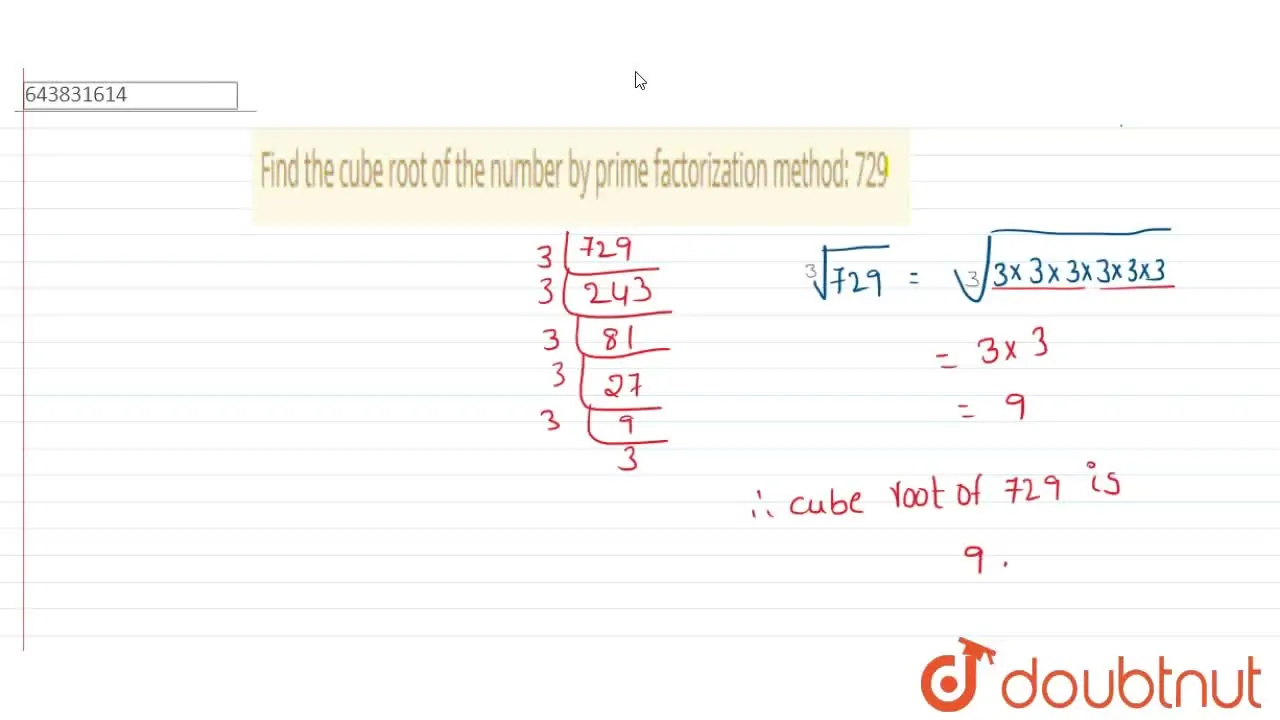 643831614
Find the cube root of the number by prime factorization method: 729
3 729
3 243
3 81
3 27
3 9
3
∛729 = ∛3×3×3×3×3×3
= 3×3
= 9
∴ cube root of 729 is
9.
doubtnut